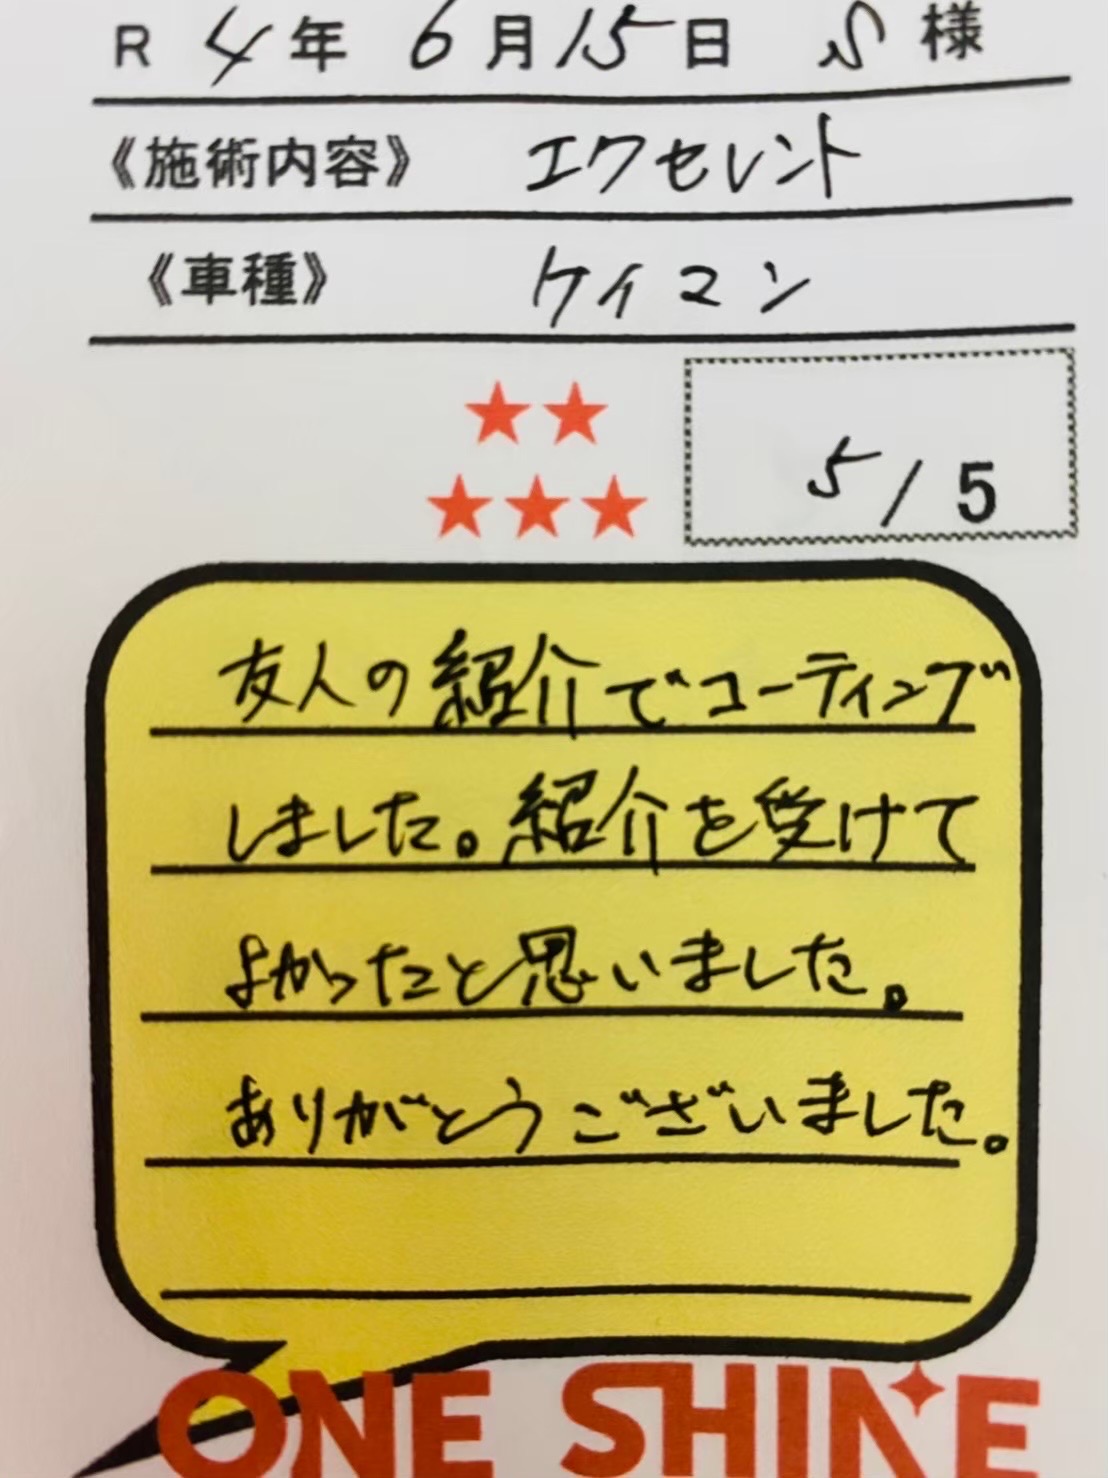 R 4年 6月15日 S様
《施術内容》 エクセレント
《車種》 ケイマン
5/5
友人の紹介でコーティング
しました。紹介を受けて
よかったと思いました。
ありがとうございました。
ONE SHINE